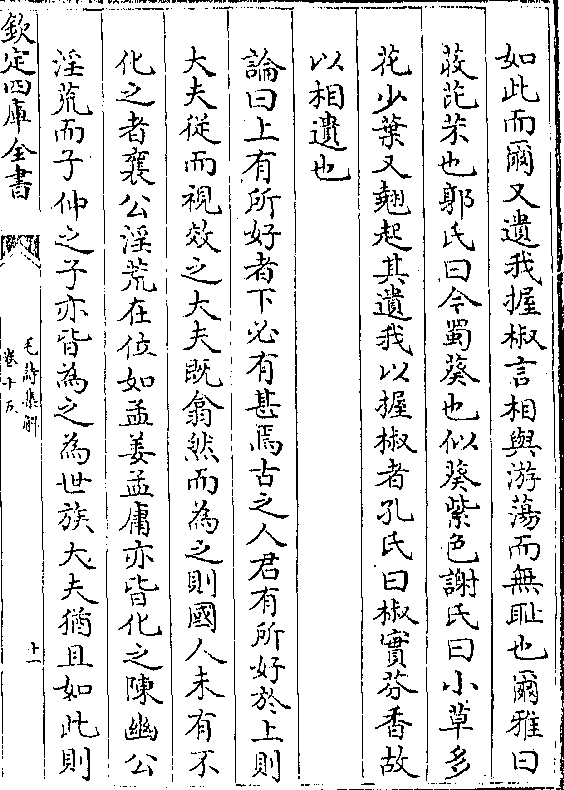 如此而爾又遺我握椒言相與游蕩而無耻也爾雅曰
荍芘芣也郭氏曰今蜀葵也似葵紫色謝氏曰小草多
花少葉又翹起其遺我以握椒者孔氏曰椒實芬香故
以相遺也
論曰上有所好者下必有甚焉古之人君有所好於上則
大夫從而視效之大夫既翕然而為之則國人未有不
化之者襄公淫荒在位如孟姜孟庸亦皆化之陳幽公
淫荒而子仲之子亦皆為之為世族大夫猶且如此則
欽定四庫全書
毛詩集解
卷十五
十一